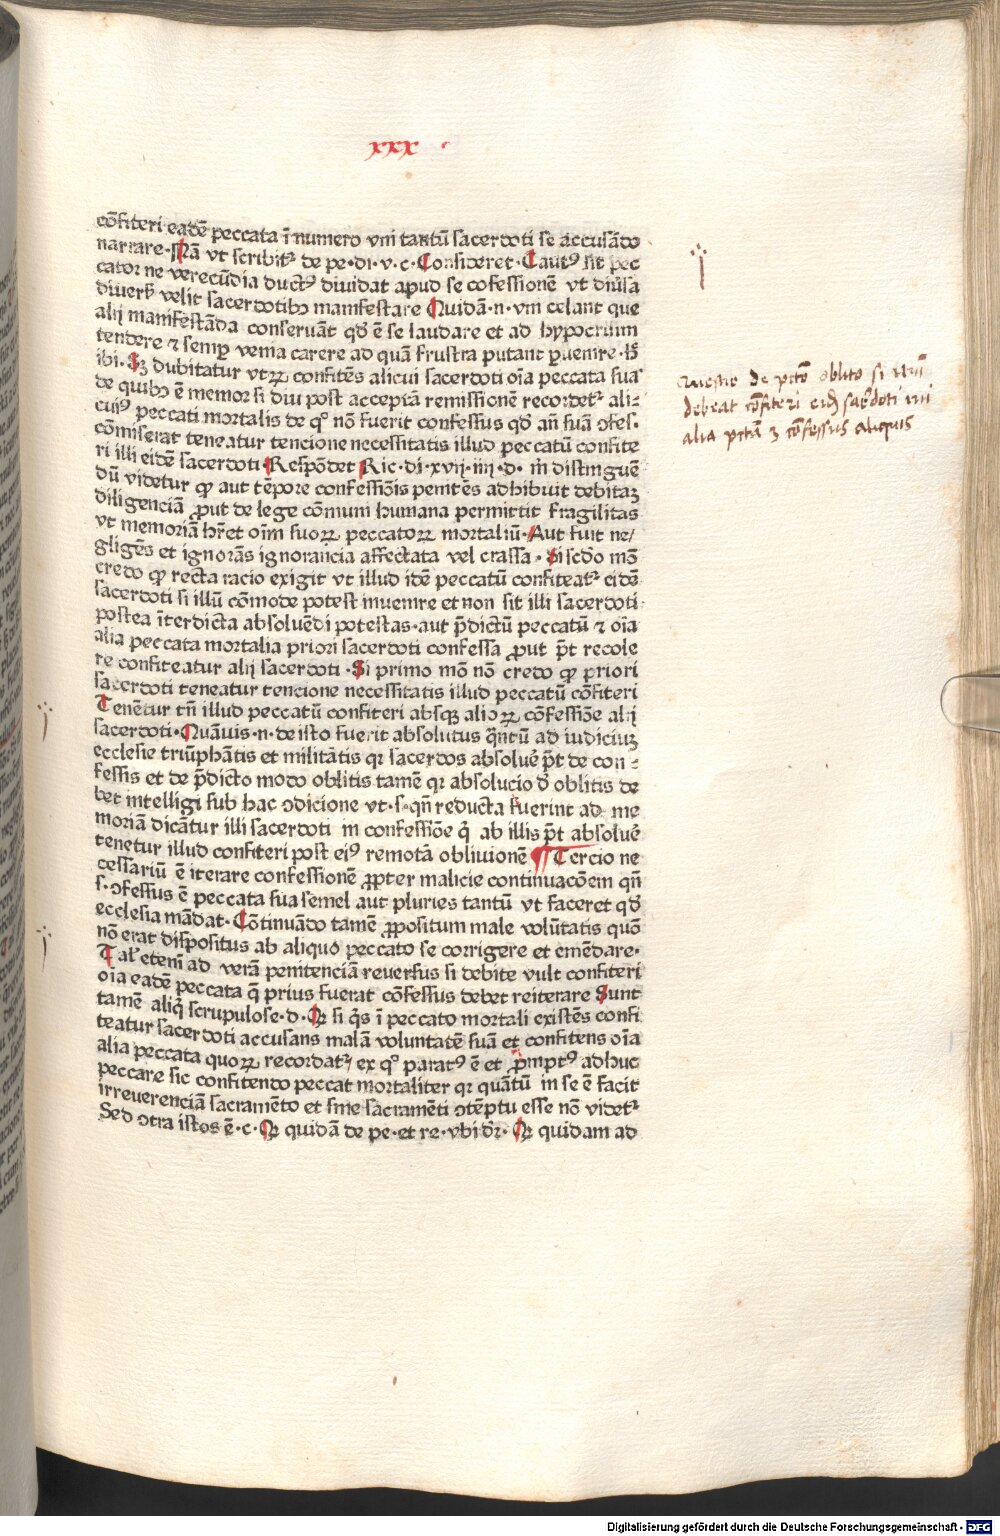 xxx
cōfiteri eadē peccata ī numero vni tantū sacerdoti se accusādo
narrare·Nā vt scribitꝛ de pe·di·v·c·Consideret·Cautꝰ sit pec
cator ne verecūdia ductꝰ diuidat apud se cōfessionē vt diūsa
diuersꝭ velit sacerdotibꝫ manifestare Quidā·n·vni celant que
alij manifestāda conseruāt qd̄ ē se laudare et ad hypocrisim
tendere ⁊ semꝑ venia carere ad quā frustra putant ꝑuenire·h̄
ibi·Sꝫ dubitatur vtꝝ confitēs alicui sacerdoti oīa peccata sua
de quibꝫ ē memor si diu post acceptā remissionē recordetꝛ ali-
cuiꝰ peccati mortalis de qͦ nō fuerit confessus qd̄ an̄ suā ↄfes.
cōmiserat teneatur tencione necessitatis illud peccatū confite
ri illi eidē sacerdoti·Respōdet Ric·di·xvij·iiij·d· in̄ distinguē
dū videtur ꝙ aut tēpore confessiōis penitēs adhibuit debitaꝫ
diligenciā ꝓut de lege cōmuni humana permittit fragilitas
vt memoriā hr̄et oīm suoꝝ peccatoꝝ mortaliū·Aut fuit ne/
gligēs et ignorās ignorancia affectata vel crassa·Si scd̄o mō
credo ꝙ recta racio exigit vt illud idē peccatū confiteatꝛ eidē
sacerdoti si illū cōmode potest inuenire et non sit illi sacerdoti
postea īterdicta absoluēdi potestas·aut p̄dictū peccatū ⁊ oīa
alia peccata mortalia priori sacerdoti confessa ꝓut p̄t recole
re confiteatur alij sacerdoti·Si primo mō nō credo ꝙ priori
sacerdoti teneatur tencione necessitatis illud peccatū cōfiteri
Tenētur tn̄ illud peccatū confiteri absqꝫ alioꝝ cōfessiōe alij
sacerdoti·Quāuis·n·de isto fuerit absolutus q̄ntū ad iudiciuꝫ
ecclesie triūphātis et militātis qꝛ sacerdos absoluē p̄t de con-
fessis et de p̄dicto modo oblitis tamē qꝛ absolucio d̄ oblitis de
bet intelligi sub hac ↄdicione vt·s·qn̄ reducta fuerint ad me
moriā dicātur illi sacerdoti in confessiōe q̇ ab illis p̄t absoluē
tenetur illud confiteri post eiꝰ remotā obliuionē ¶Tercio ne
cessariū ē iterare confessionē ꝓpter malicie continuacōem qn̄
s·ↄfessus ē peccata sua semel aut pluries tantū vt faceret qd̄
ecclesia mādat·Cōtinuādo tamē ꝓpositum male volūtatis quō
nō erat dispositus ab aliquo peccato se corrigere et emēdare·
Tal̓ etenī ad verā penitenciā reuersus si debite vult confiteri
oīa eadē peccata q̄ prius fuerat cōfessus debet reiterare Sunt
tamē aliq̇ scrupulose·d·Qꝛ si q̇s ī peccato mortali existēs confi
teatur sacerdoti accusans malā voluntatē suā et confitens oīa
alia peccata quoꝝ recordatꝛ ex qͦ paratꝰ ē et ꝓmptꝰ adhuc
peccare sic confitendo peccat mortaliter qꝛ quātū in se ē facit
irreuerenciā sacramēto et sine sacramēti ↄtēptu esse nō videtꝛ
Sed ↄtra istos ē·c·Qꝛ quidā de pe·et re·vbi dꝛ̄·Qꝛ quidam ad
debeat cōfiteri eidē sacerdoti cui
alia pctā ē cōfessus aliquis
Digitalisierung gefördert durch die Deutsche Forschungsgemeinschaft - DFG